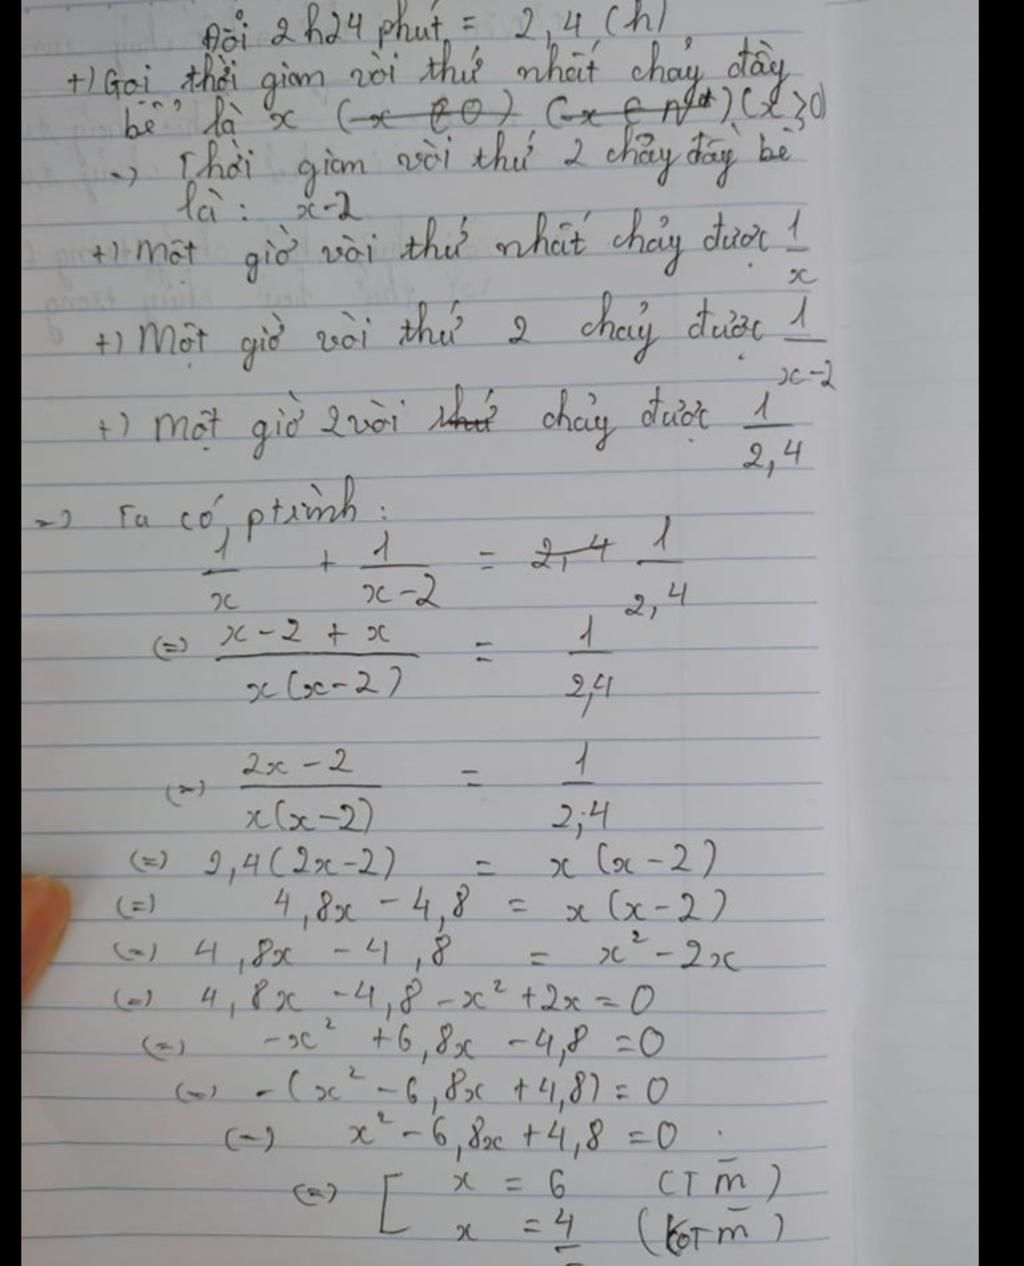 Đổi 2h24 phút = 2,4 (h)
+) Gọi thời gian vòi thứ nhất chảy đầy
bể là x (x ∈ 0) (x ∈ N*) (x > 0)
=> Thời gian vòi thứ 2 chảy đầy bể
là : x-2
+) Một giờ vòi thứ nhất chảy được 1/x
+) Một giờ vòi thứ 2 chảy được 1/(x-2)
+) Một giờ 2 vòi thứ chảy được 1/2,4
=> Ta có ptrình :
1/x + 1/(x-2) = 2,4 1/2,4
(=) (x-2+x)/(x(x-2)) = 1/2,4
(=) (2x-2)/(x(x-2)) = 1/2,4
(=) 2,4(2x-2) = x(x-2)
(=) 4,8x - 4,8 = x(x-2)
(=) 4,8x - 4,8 = x² - 2x
(=) 4,8x - 4,8 - x² + 2x = 0
(=) -x² + 6,8x - 4,8 = 0
(=) -(x² - 6,8x + 4,8) = 0
(=) x² - 6,8x + 4,8 = 0
(=) [ x = 6 (Tm)
x = 4 (KoTm)